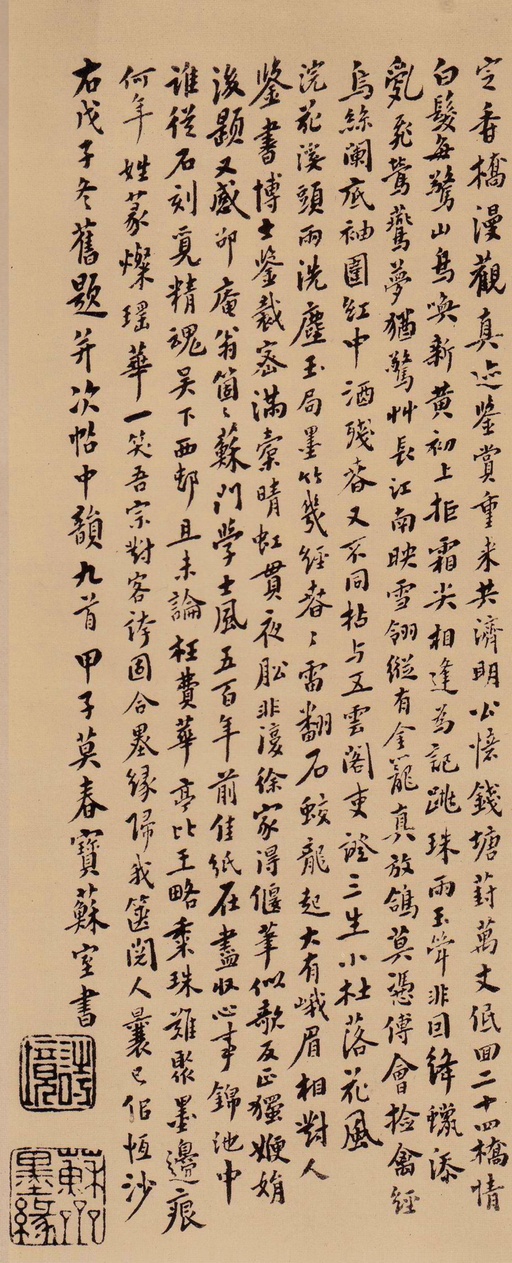 定香橋漫觀真迹鑒賞重來共濟明公憶錢塘葑萬丈低回二十四橋情
白髮每驚山鳥喚新黃初上拒霜尖相逢為記跳珠雨玉筍非同絳蠟添
亂飛鶯燕夢猶驚艸長江南映雪翎縱有金籠真放鴿莫憑傅會撿禽經
烏絲闌底袖圍紅中酒殘春又不同拈与五雲閣吏證三生小杜落花風
浣花溪頭雨洗塵玉局墨竹幾經春春雷翻石蛟龍起大有峨眉相對人
鑒書博士鑒裁密滿橐晴虹貫夜船非復徐家得偃筆似歌反正獨便娟
後題又感卲庵翁箇箇蘇門學士風五百年前佳紙在盡收心事錦池中
誰從石刻覓精魂吳下西邨且未論枉費華亭比王略黍珠難聚墨邊痕
何年姓篆燦瑤華一笑吾宗對客誇固合墨緣歸我篋閱人曩已侶恆沙
右戊子冬舊題并次帖中韻九首甲子莫春寶蘇室書
詩境
蘇齋墨緣